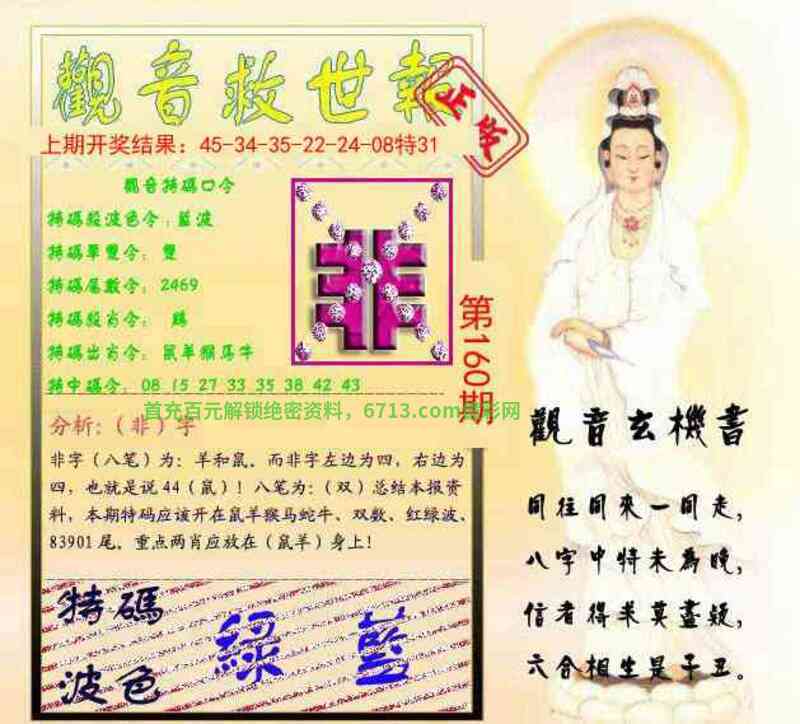 觀音救世報
正版
上期开奖结果：45-34-35-22-24-08特31
觀音特碼口令
特碼殺波色令：藍波
特碼單雙令：雙
特碼尾數令：2469
特碼殺肖令：鷄
特碼出肖令：鼠羊猴馬牛
特中碼令：08 15 27 33 35 38 42 43
非
第160期
首充百元解锁绝密资料，6713.com
分析：（非）字
非字（八笔）为：羊和鼠。而非字左边为四，右边为
四，也就是说44（鼠）！八笔为：（双）总结本报资
料，本期特码应该开在鼠羊猴马蛇牛、双数、红绿波、
83901尾。重点两肖应放在（鼠羊）身上！
特碼
波色
綠 藍
觀音玄機書
同往同來一同走，
八字中特未為晚，
信者得米莫盡疑，
六合相生是子丑。